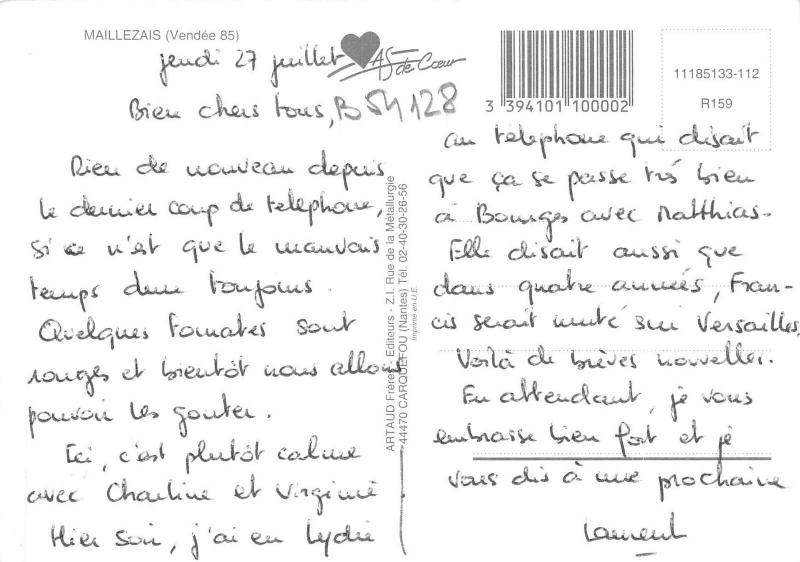 MAILLEZAIS (Vendée 85)
As de Cœur
3 394101 100002
11185133-112
R159
B 54128
jeudi 27 juillet
Bien chers tous,
Rien de nouveau depuis
le dernier coup de telephone,
si ce n'est que le mauvais
temps dure toujours.
Quelques tomates sont
rouges et bientôt nous allons
pouvoir les gouter.
Ici, c'est plutôt calme
avec Charline et Virginie
Hier soir, j'ai eu Lydie
ARTAUD Frères - Editeurs - Z.I. Rue de la Métallurgie
44470 CARQUEFOU (Nantes) Tél. 02-40-30-26-56
Imprimé en U.E.
au telephone qui disait
que ça se passe très bien
à Bourges avec Matthias.
Elle disait aussi que
dans quatre années, Fran-
cis serait muté sur Versailles.
Voilà de brèves nouvelles.
En attendant, je vous
embrasse bien fort et je
vous dis à une prochaine
Laurent